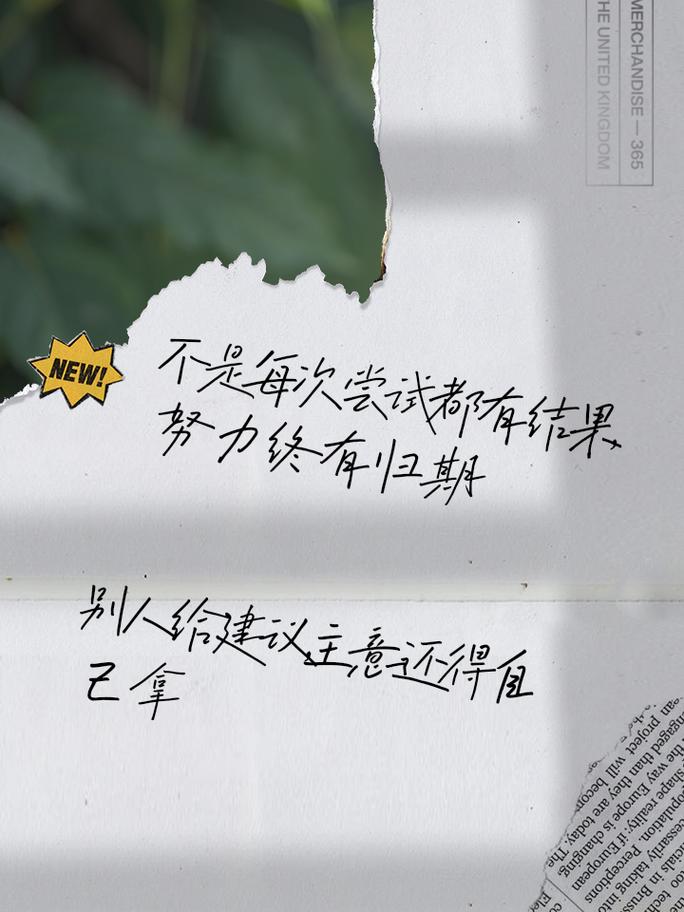 MERCHANDISE — 365
THE UNITED KINGDOM
NEW!
不是每次尝试都有结果
努力终有归期
别人给建议主意还得自
己拿
project will becom
engaged than they are today. The
the way Europe is changing
shape reality: if European
population. Perceptions
necessarily taking into